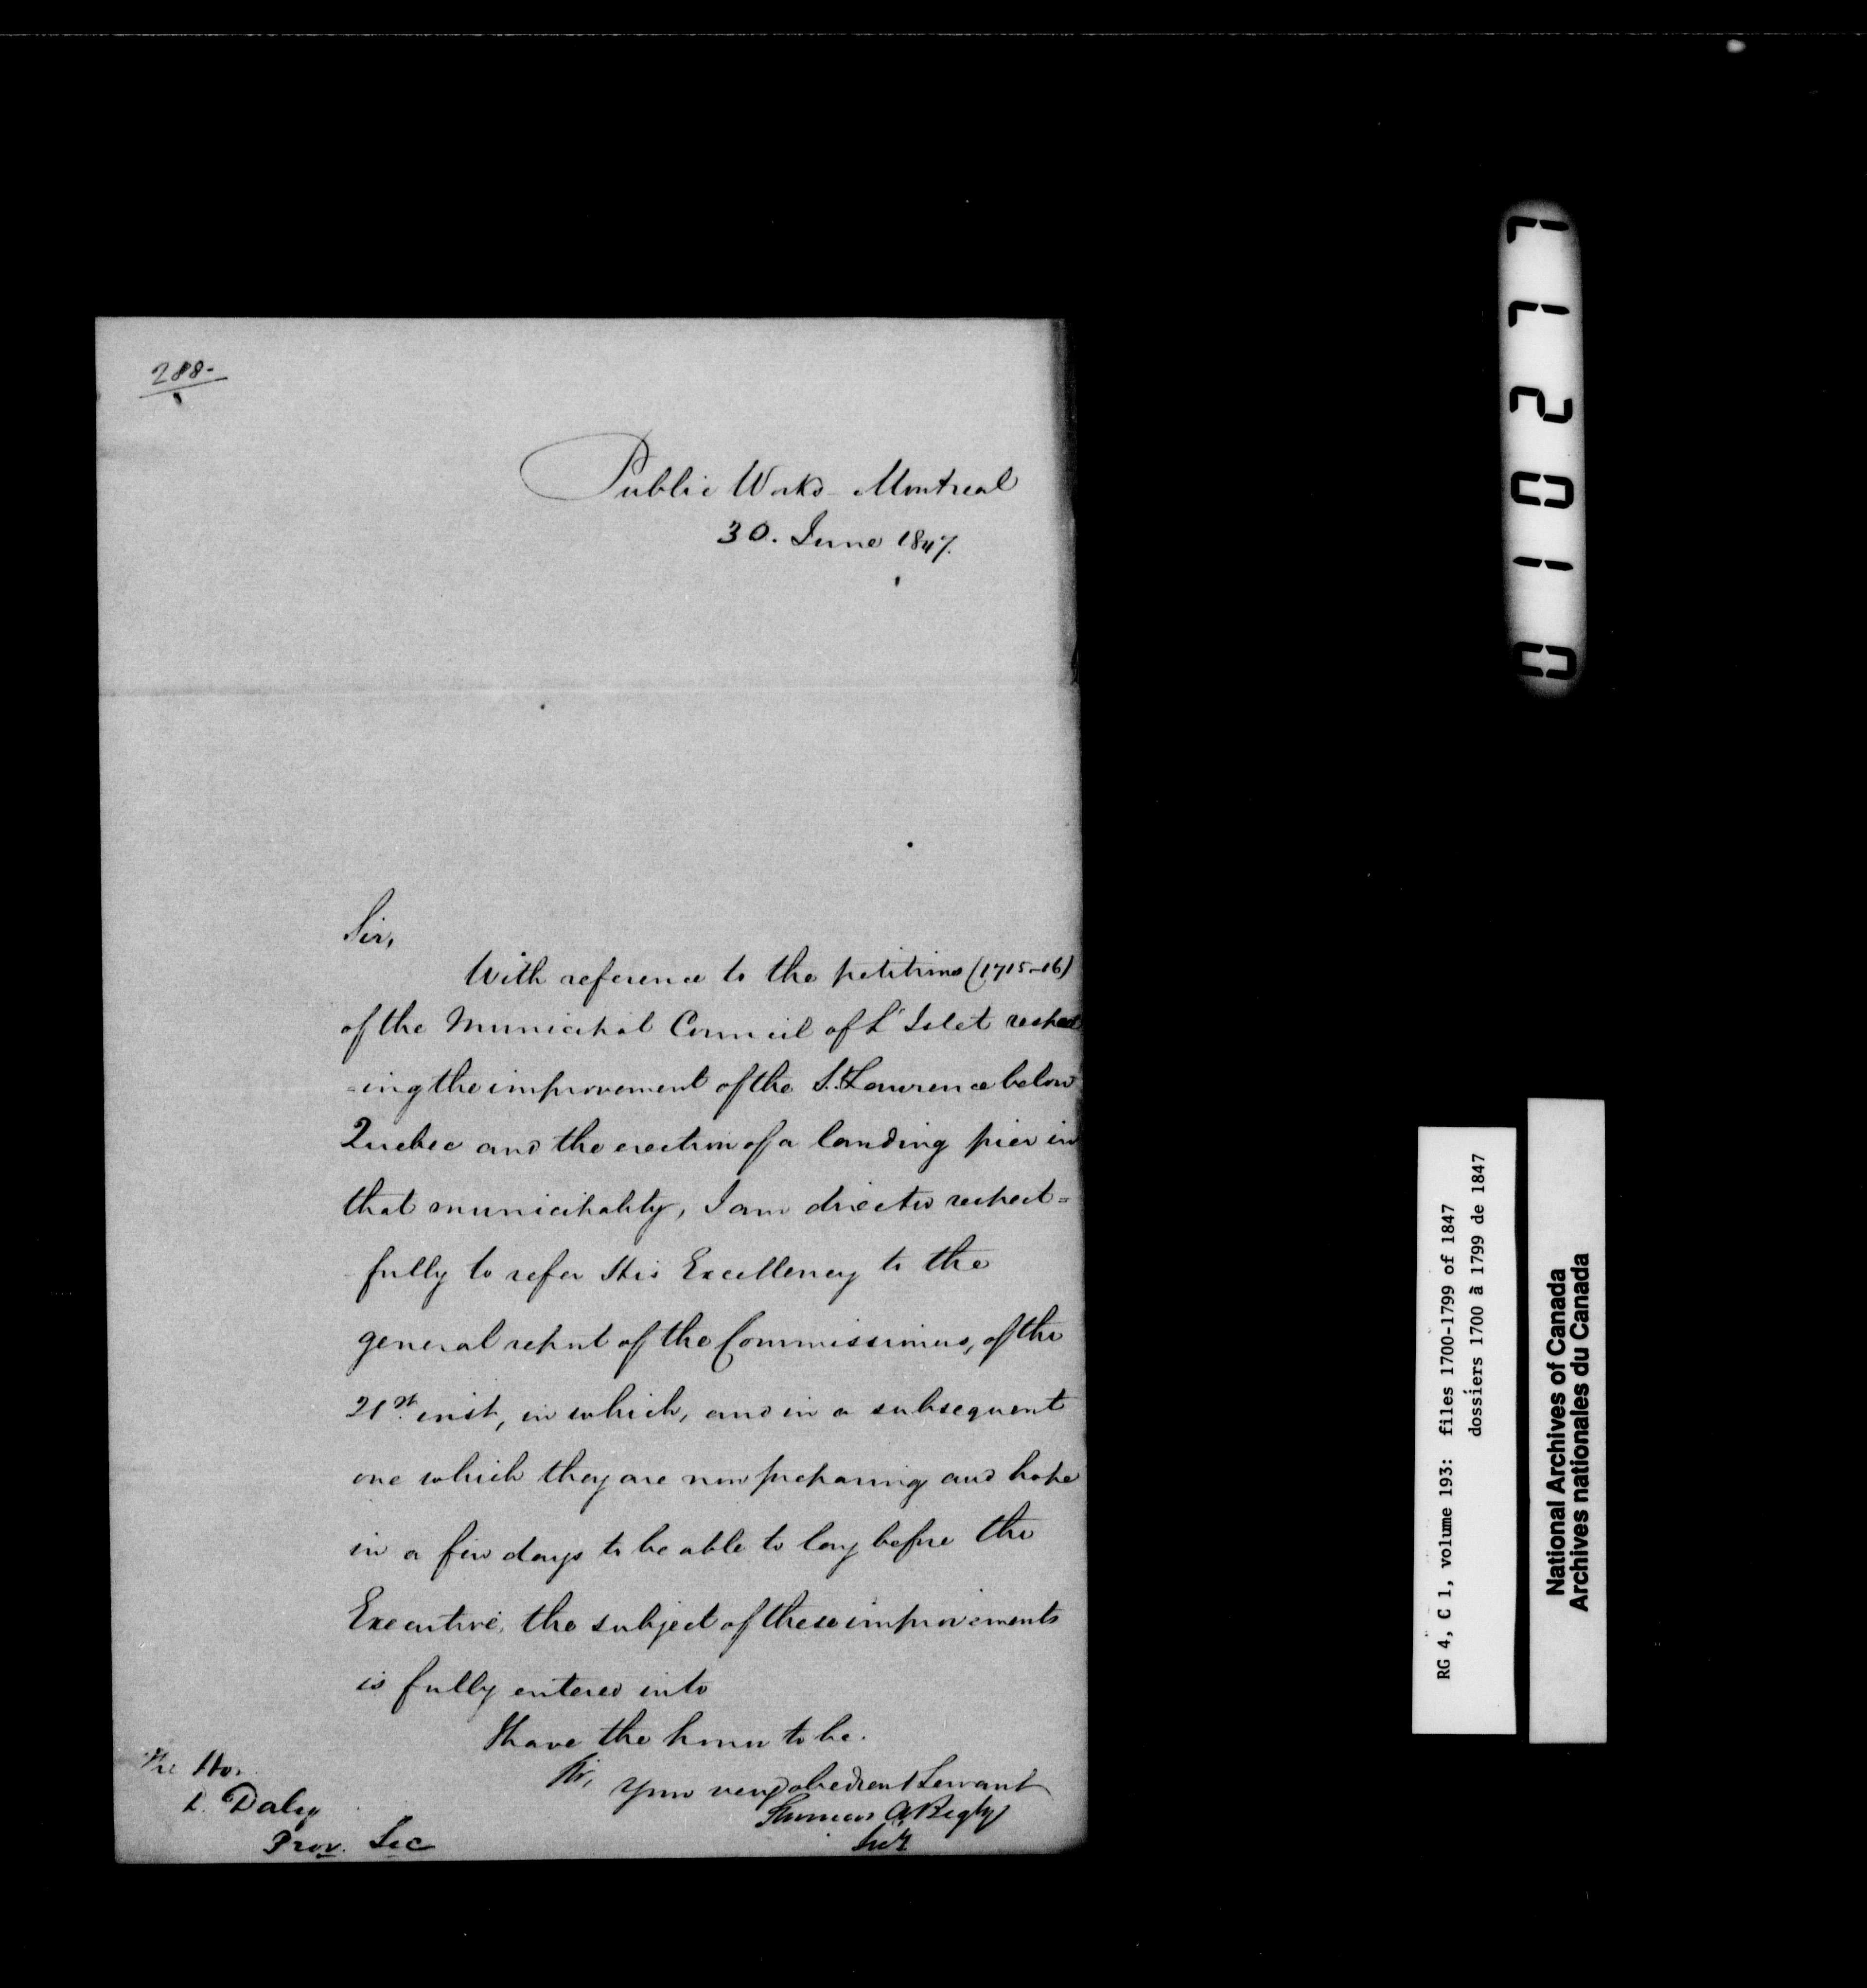 288-
Public Works Montreal
30. June 1847.
Sir,
With reference to the petitions (1715-16)
of the Municipal Council of L'Islet respect
=ing the improvement of the St. Lawrence below
Quebec and the erection of a landing pier in
that municipality, I am directed respect=
fully to refer His Excellency to the
general report of the Commissioners, of the
21st inst, in which, and in a subsequent
one which they are now preparing and hope
in a few days to be able to lay before the
Executive, the subject of these improvements
is fully entered into
I have the honor to be.
Sir, Your very obedient Servant
Thomas A Begly
Secy.
The Hon
D. Daly
Prov. Sec
0110277
RG 4, C 1, volume 193: files 1700-1799 of 1847
dossiers 1700 à 1799 de 1847
National Archives of Canada
Archives nationales du Canada